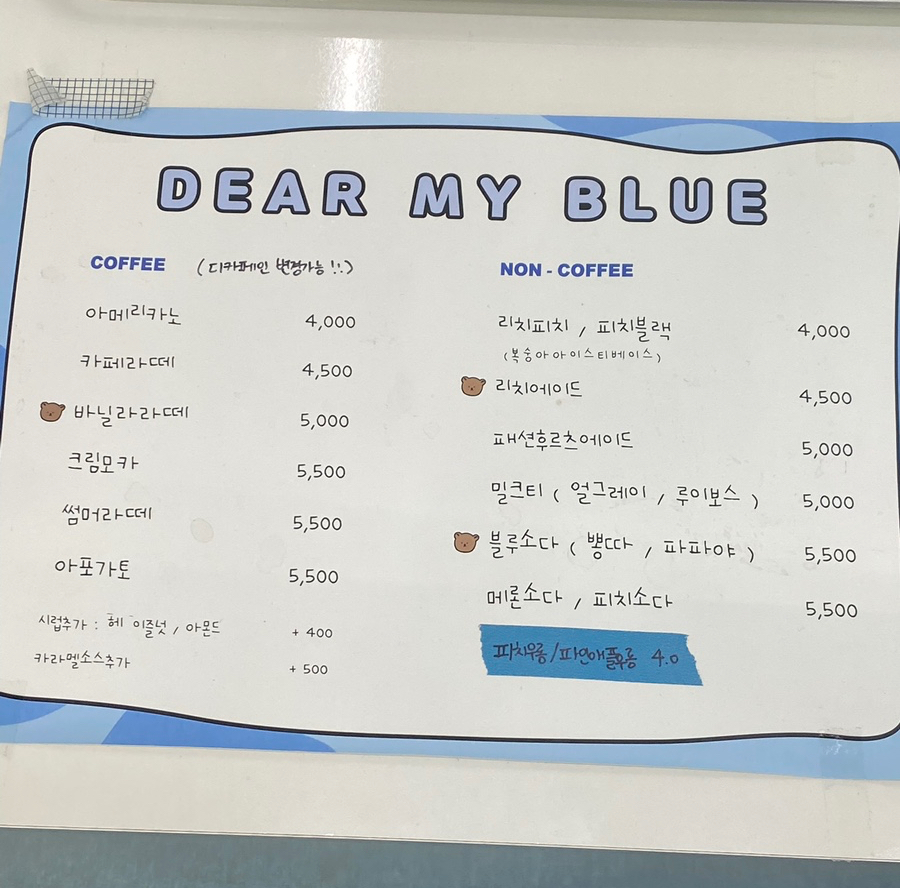 DEAR MY BLUE
COFFEE (디카페인 변경가능!!)
아메리카노 4,000
카페라떼 4,500
바닐라라떼 5,000
크림모카 5,500
썸머라떼 5,500
아포가토 5,500
시럽추가 : 헤이즐넛 / 아몬드 + 400
카라멜소스추가 + 500
NON - COFFEE
리치피치 / 피치블랙 4,000
(복숭아아이스티베이스)
리치에이드 4,500
패션후르츠에이드 5,000
밀크티 ( 얼그레이 , 루이보스 ) 5,000
블루소다 ( 뽕따 , 파파야 ) 5,500
메론소다 / 피치소다 5,500
피치우롱/파인애플우롱 4.0